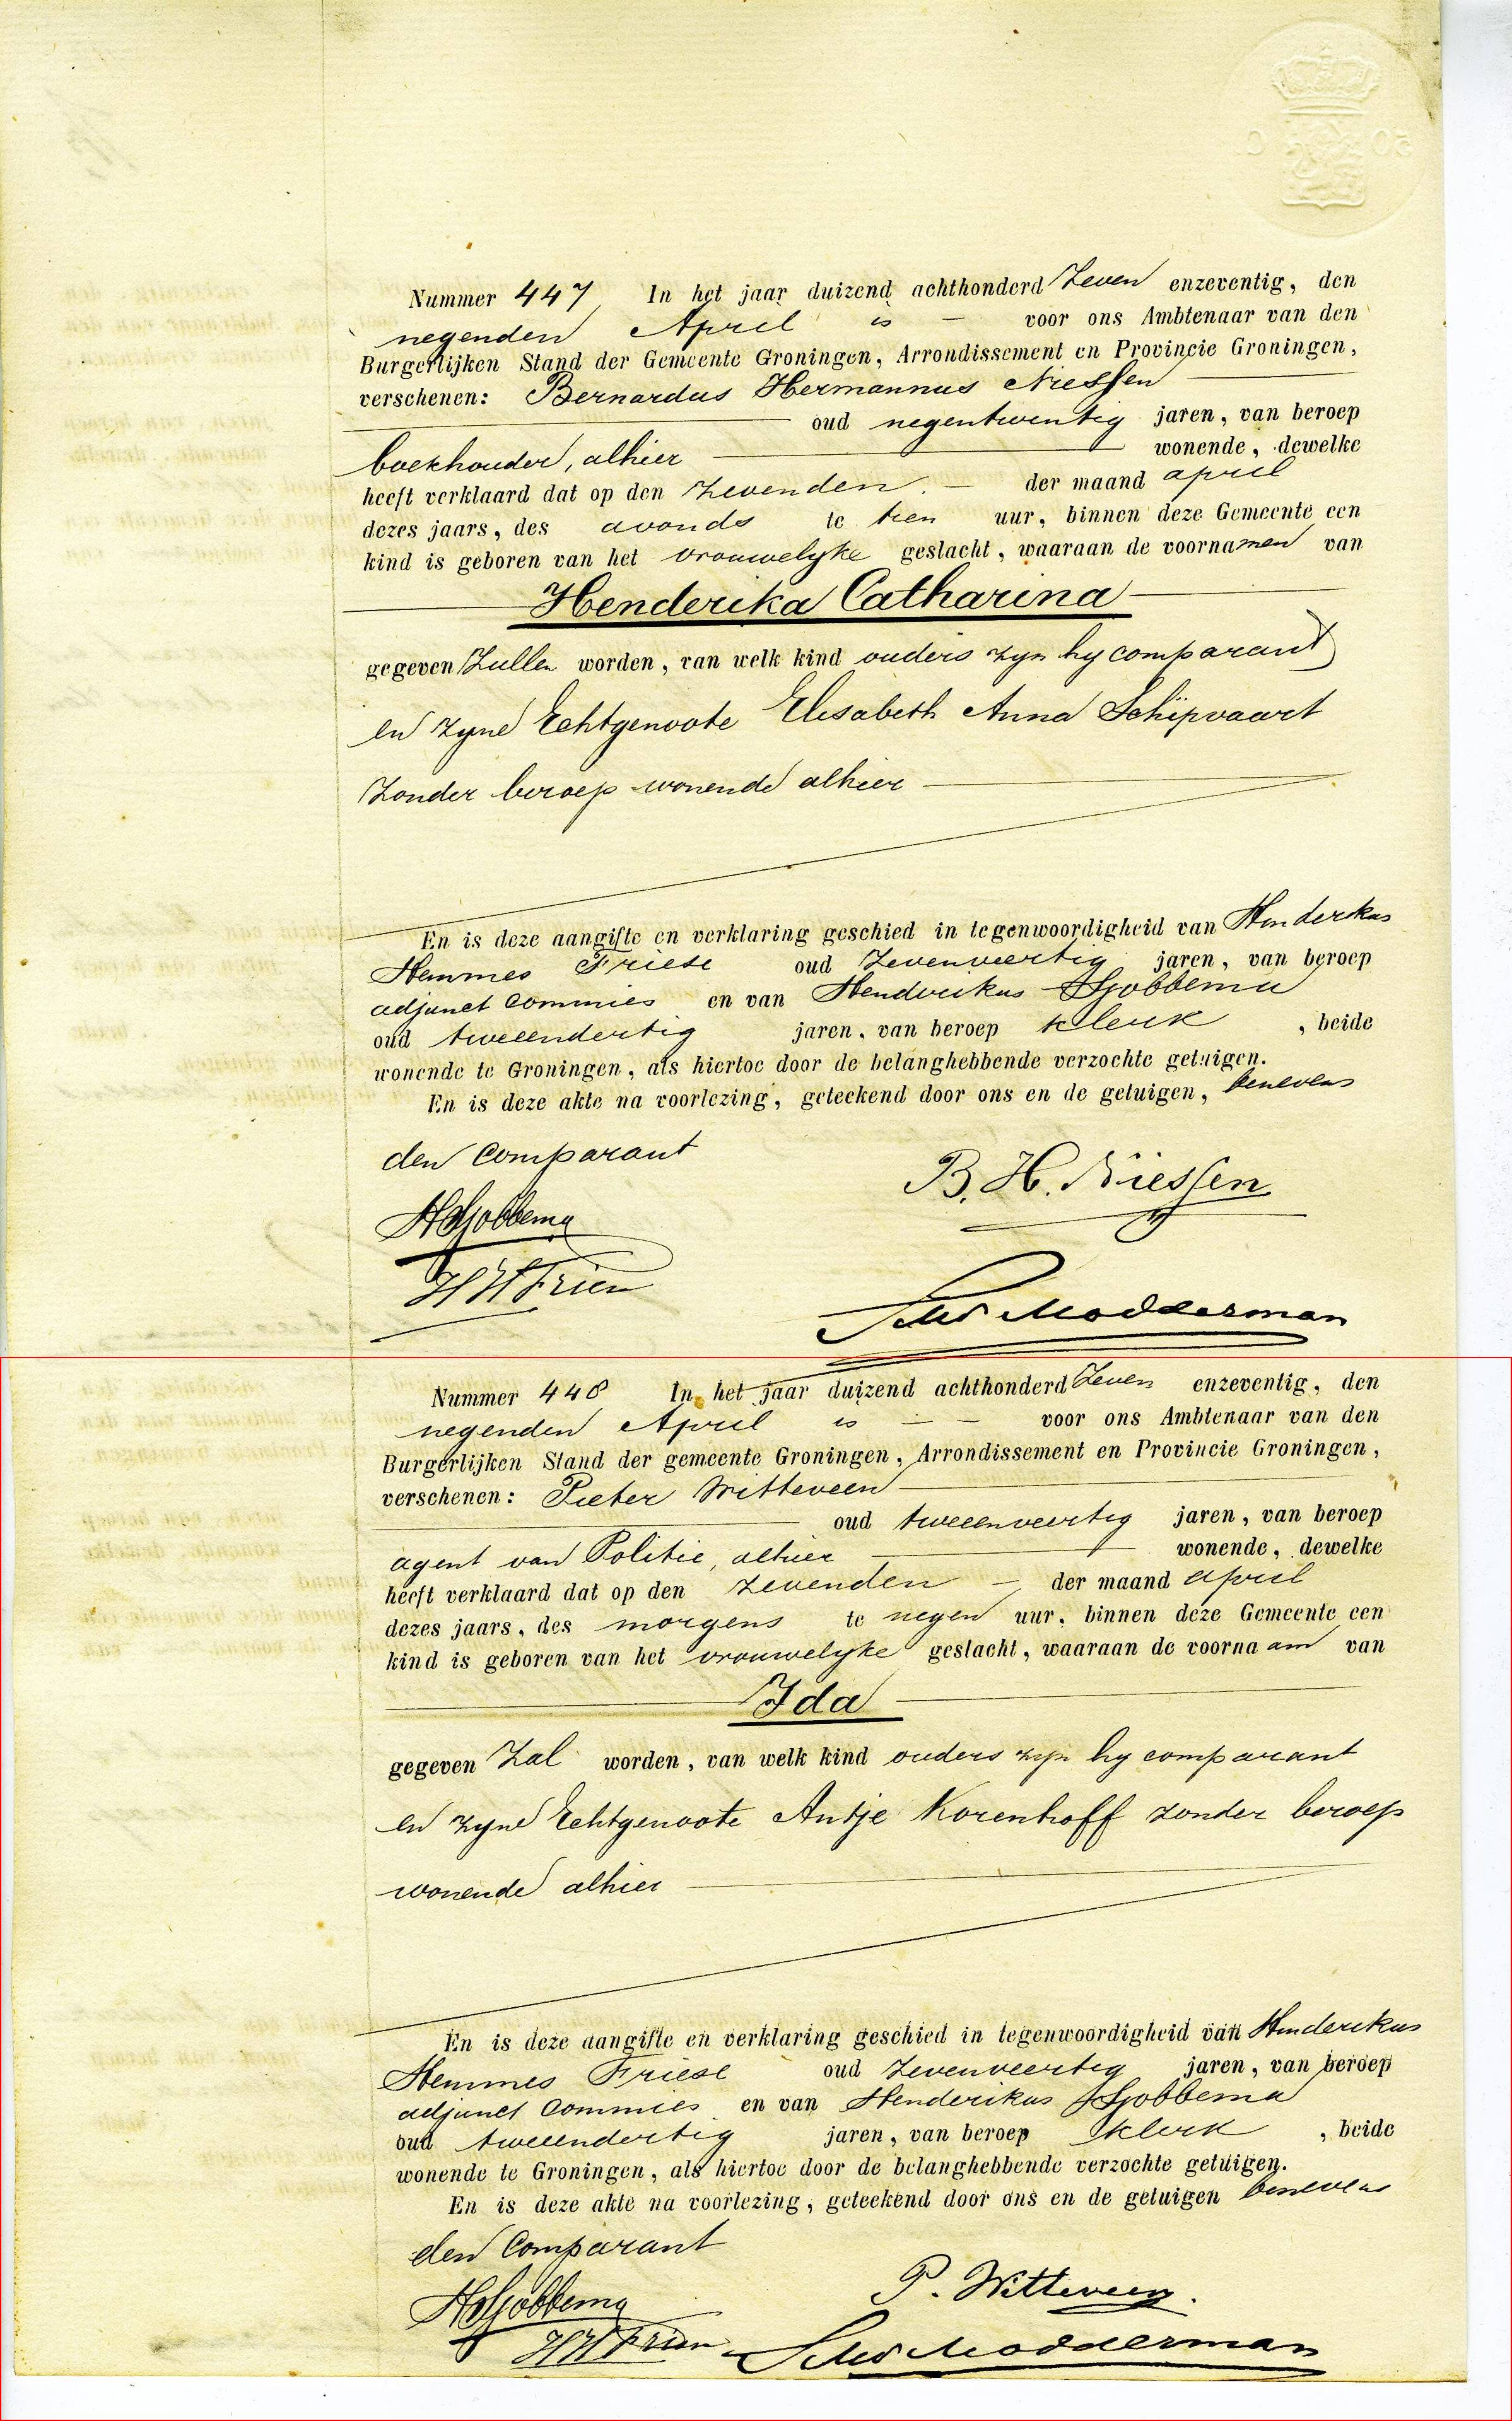 Nummer 447 In het jaar duizend achthonderd Zeven enzeventig, den
negenden April is voor ons Ambtenaar van den
Burgerlijken Stand der Gemeente Groningen, Arrondissement en Provincie Groningen,
verschenen: Bernardus Hermannus Niessen
oud negentwentig jaren, van beroep
boekhouder, alhier wonende, dewelke
heeft verklaard dat op den zevenden der maand april
dezes jaars, des avonds te tien uur, binnen deze Gemeente een
kind is geboren van het vrouwelyke geslacht, waaraan de voornamen van
Henderika Catharina
gegeven Zullen worden, van welk kind ouders zyn hy comparant
en zyne Echtgenoote Elisabeth Anna Schipvaart
Zonder beroep wonende alhier
En is deze aangifte en verklaring geschied in tegenwoordigheid van Henderikus
Hemmes Friese oud Zevenveertig jaren, van beroep
adjunct Commies en van Hendrikus Sjobbema
oud tweeendertig jaren, van beroep klerk, beide
wonende te Groningen, als hiertoe door de belanghebbende verzochte getuigen.
En is deze akte na voorlezing, geteekend door ons en de getuigen, benevens
den Comparant
B. H. Niessen
HSjobbema
HHFriese
Modderman
Nummer 448 In het jaar duizend achthonderd Zeven enzeventig, den
negenden April is voor ons Ambtenaar van den
Burgerlijken Stand der gemeente Groningen, Arrondissement en Provincie Groningen,
verschenen: Pieter Witteveen
oud tweeenveertig jaren, van beroep
agent van Politie, alhier wonende, dewelke
heeft verklaard dat op den zevenden der maand april
dezes jaars, des morgens te negen uur, binnen deze Gemeente een
kind is geboren van het vrouwelyke geslacht, waaraan de voornaam van
Ida
gegeven Zal worden, van welk kind ouders zyn hy comparant
en zyne Echtgenoote Antje Korenhoff zonder beroep
wonende alhier
En is deze aangifte en verklaring geschied in tegenwoordigheid van Henderikus
Hemmes Friese oud Zevenveertig jaren, van beroep
adjunct Commies en van Henderikus Sjobbema
oud tweeendertig jaren, van beroep klerk, beide
wonende te Groningen, als hiertoe door de belanghebbende verzochte getuigen.
En is deze akte na voorlezing, geteekend door ons en de getuigen benevens
den Comparant
P. Witteveen.
HSjobbema
HHFriese Modderman